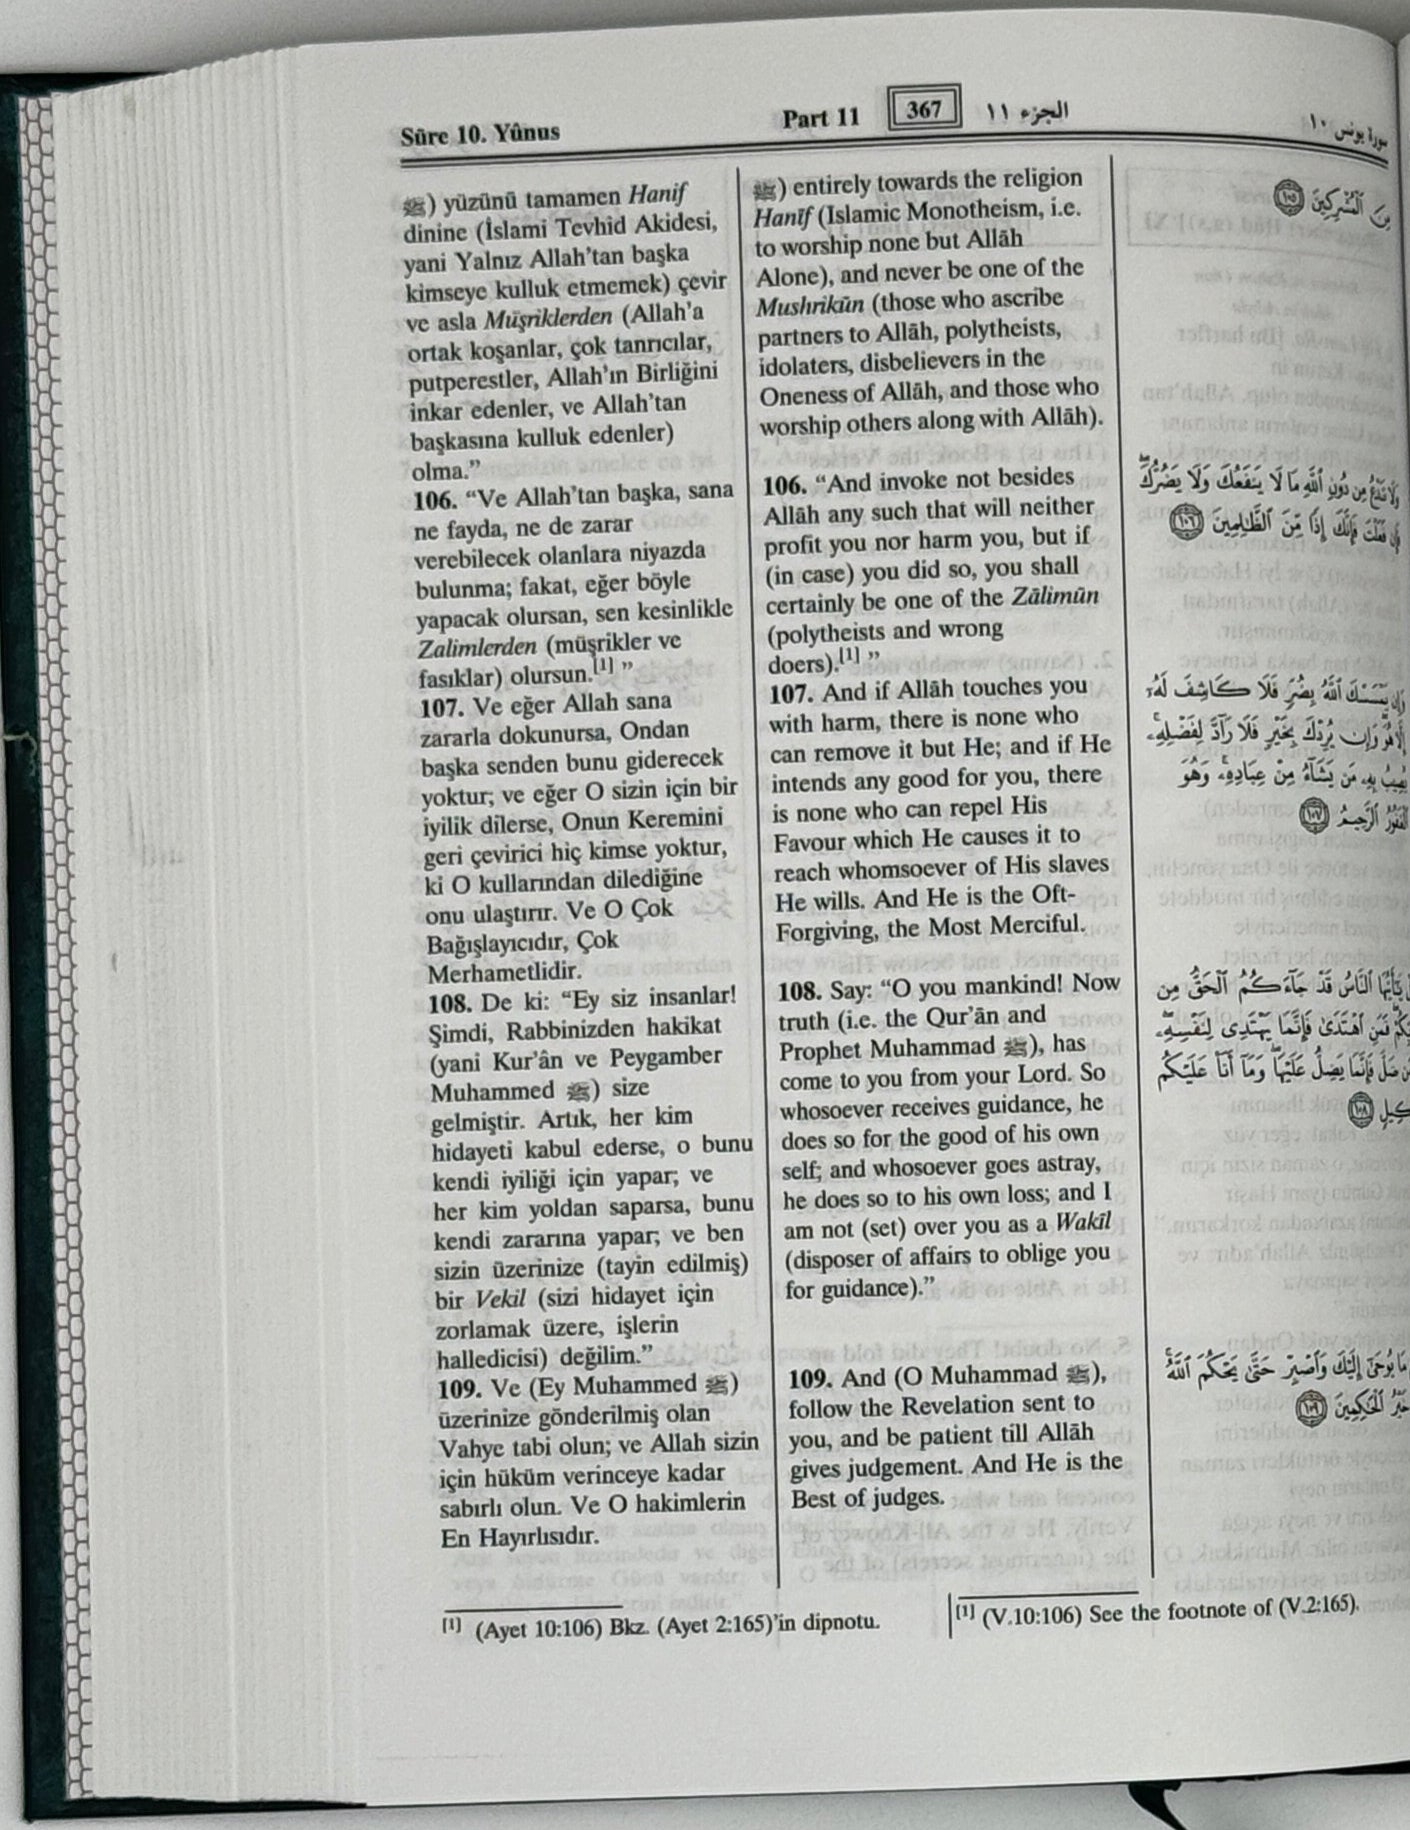 Sûre 10. Yûnus
Part 11
367
الجزء ١١
سورة يونس ١٠
ﷺ) yüzünü tamamen Hanif
dinine (İslami Tevhid Akidesi,
yani Yalnız Allah'tan başka
kimseye kulluk etmemek) çevir
ve asla Müşriklerden (Allah'a
ortak koşanlar, çok tanrıcılar,
putperestler, Allah'ın Birliğini
inkar edenler, ve Allah'tan
başkasına kulluk edenler)
olma.”
106. “Ve Allah'tan başka, sana
ne fayda, ne de zarar
verebilecek olanlara niyazda
bulunma; fakat, eğer böyle
yapacak olursan, sen kesinlikle
Zalimlerden (müşrikler ve
fasıklar) olursun.[1] ”
107. Ve eğer Allah sana
zararla dokunursa, Ondan
başka senden bunu giderecek
yoktur; ve eğer O sizin için bir
iyilik dilerse, Onun Keremini
geri çevirici hiç kimse yoktur,
ki O kullarından dilediğine
onu ulaştırır. Ve O Çok
Bağışlayıcıdır, Çok
Merhametlidir.
108. De ki: “Ey siz insanlar!
Şimdi, Rabbinizden hakikat
(yani Kur'ân ve Peygamber
Muhammed ﷺ) size
gelmiştir. Artık, her kim
hidayeti kabul ederse, o bunu
kendi iyiliği için yapar; ve
her kim yoldan saparsa, bunu
kendi zararına yapar; ve ben
sizin üzerinize (tayin edilmiş)
bir Vekil (sizi hidayet için
zorlamak üzere, işlerin
halledicisi) değilim.”
109. Ve (Ey Muhammed ﷺ)
üzerinize gönderilmiş olan
Vahye tabi olun; ve Allah sizin
için hüküm verinceye kadar
sabırlı olun. Ve O hakimlerin
En Hayırlısıdır.
ﷺ) entirely towards the religion
Hanīf (Islamic Monotheism, i.e.
to worship none but Allāh
Alone), and never be one of the
Mushrikūn (those who ascribe
partners to Allāh, polytheists,
idolaters, disbelievers in the
Oneness of Allāh, and those who
worship others along with Allāh).
106. “And invoke not besides
Allāh any such that will neither
profit you nor harm you, but if
(in case) you did so, you shall
certainly be one of the Zālimūn
(polytheists and wrong
doers).[1] ”
107. And if Allāh touches you
with harm, there is none who
can remove it but He; and if He
intends any good for you, there
is none who can repel His
Favour which He causes it to
reach whomsoever of His slaves
He wills. And He is the Oft-
Forgiving, the Most Merciful.
108. Say: “O you mankind! Now
truth (i.e. the Qur'ān and
Prophet Muhammad ﷺ), has
come to you from your Lord. So
whosoever receives guidance, he
does so for the good of his own
self; and whosoever goes astray,
he does so to his own loss; and I
am not (set) over you as a Wakīl
(disposer of affairs to oblige you
for guidance).”
109. And (O Muhammad ﷺ),
follow the Revelation sent to
you, and be patient till Allāh
gives judgement. And He is the
Best of judges.
مِنَ ٱلْمُشْرِكِينَ ١٠٥
وَلَا تَدْعُ مِن دُونِ ٱللَّهِ مَا لَا يَنفَعُكَ وَلَا يَضُرُّكَ
فَإِن فَعَلْتَ فَإِنَّكَ إِذًا مِّنَ ٱلظَّـٰلِمِينَ ١٠٦
وَإِن يَمْسَسْكَ ٱللَّهُ بِضُرٍّ فَلَا كَاشِفَ لَهُۥٓ
إِلَّا هُوَ وَإِن يُرِدْكَ بِخَيْرٍ فَلَا رَآدَّ لِفَضْلِهِۦ
يُصِيبُ بِهِۦ مَن يَشَآءُ مِنْ عِبَادِهِۦ وَهُوَ
ٱلْغَفُورُ ٱلرَّحِيمُ ١٠٧
يَـٰٓأَيُّهَا ٱلنَّاسُ قَدْ جَآءَكُمُ ٱلْحَقُّ مِن
فَمَنِ ٱهْتَدَىٰ فَإِنَّمَا يَهْتَدِى لِنَفْسِهِۦ
ضَلَّ فَإِنَّمَا يَضِلُّ عَلَيْهَا وَمَآ أَنَا۠ عَلَيْكُم
١٠٨
مَا يُوحَىٰٓ إِلَيْكَ وَٱصْبِرْ حَتَّىٰ يَحْكُمَ ٱللَّهُ
خَيْرُ ٱلْحَـٰكِمِينَ ١٠٩
[1] (Ayet 10:106) Bkz. (Ayet 2:165)'in dipnotu.
[1] (V.10:106) See the footnote of (V.2:165).